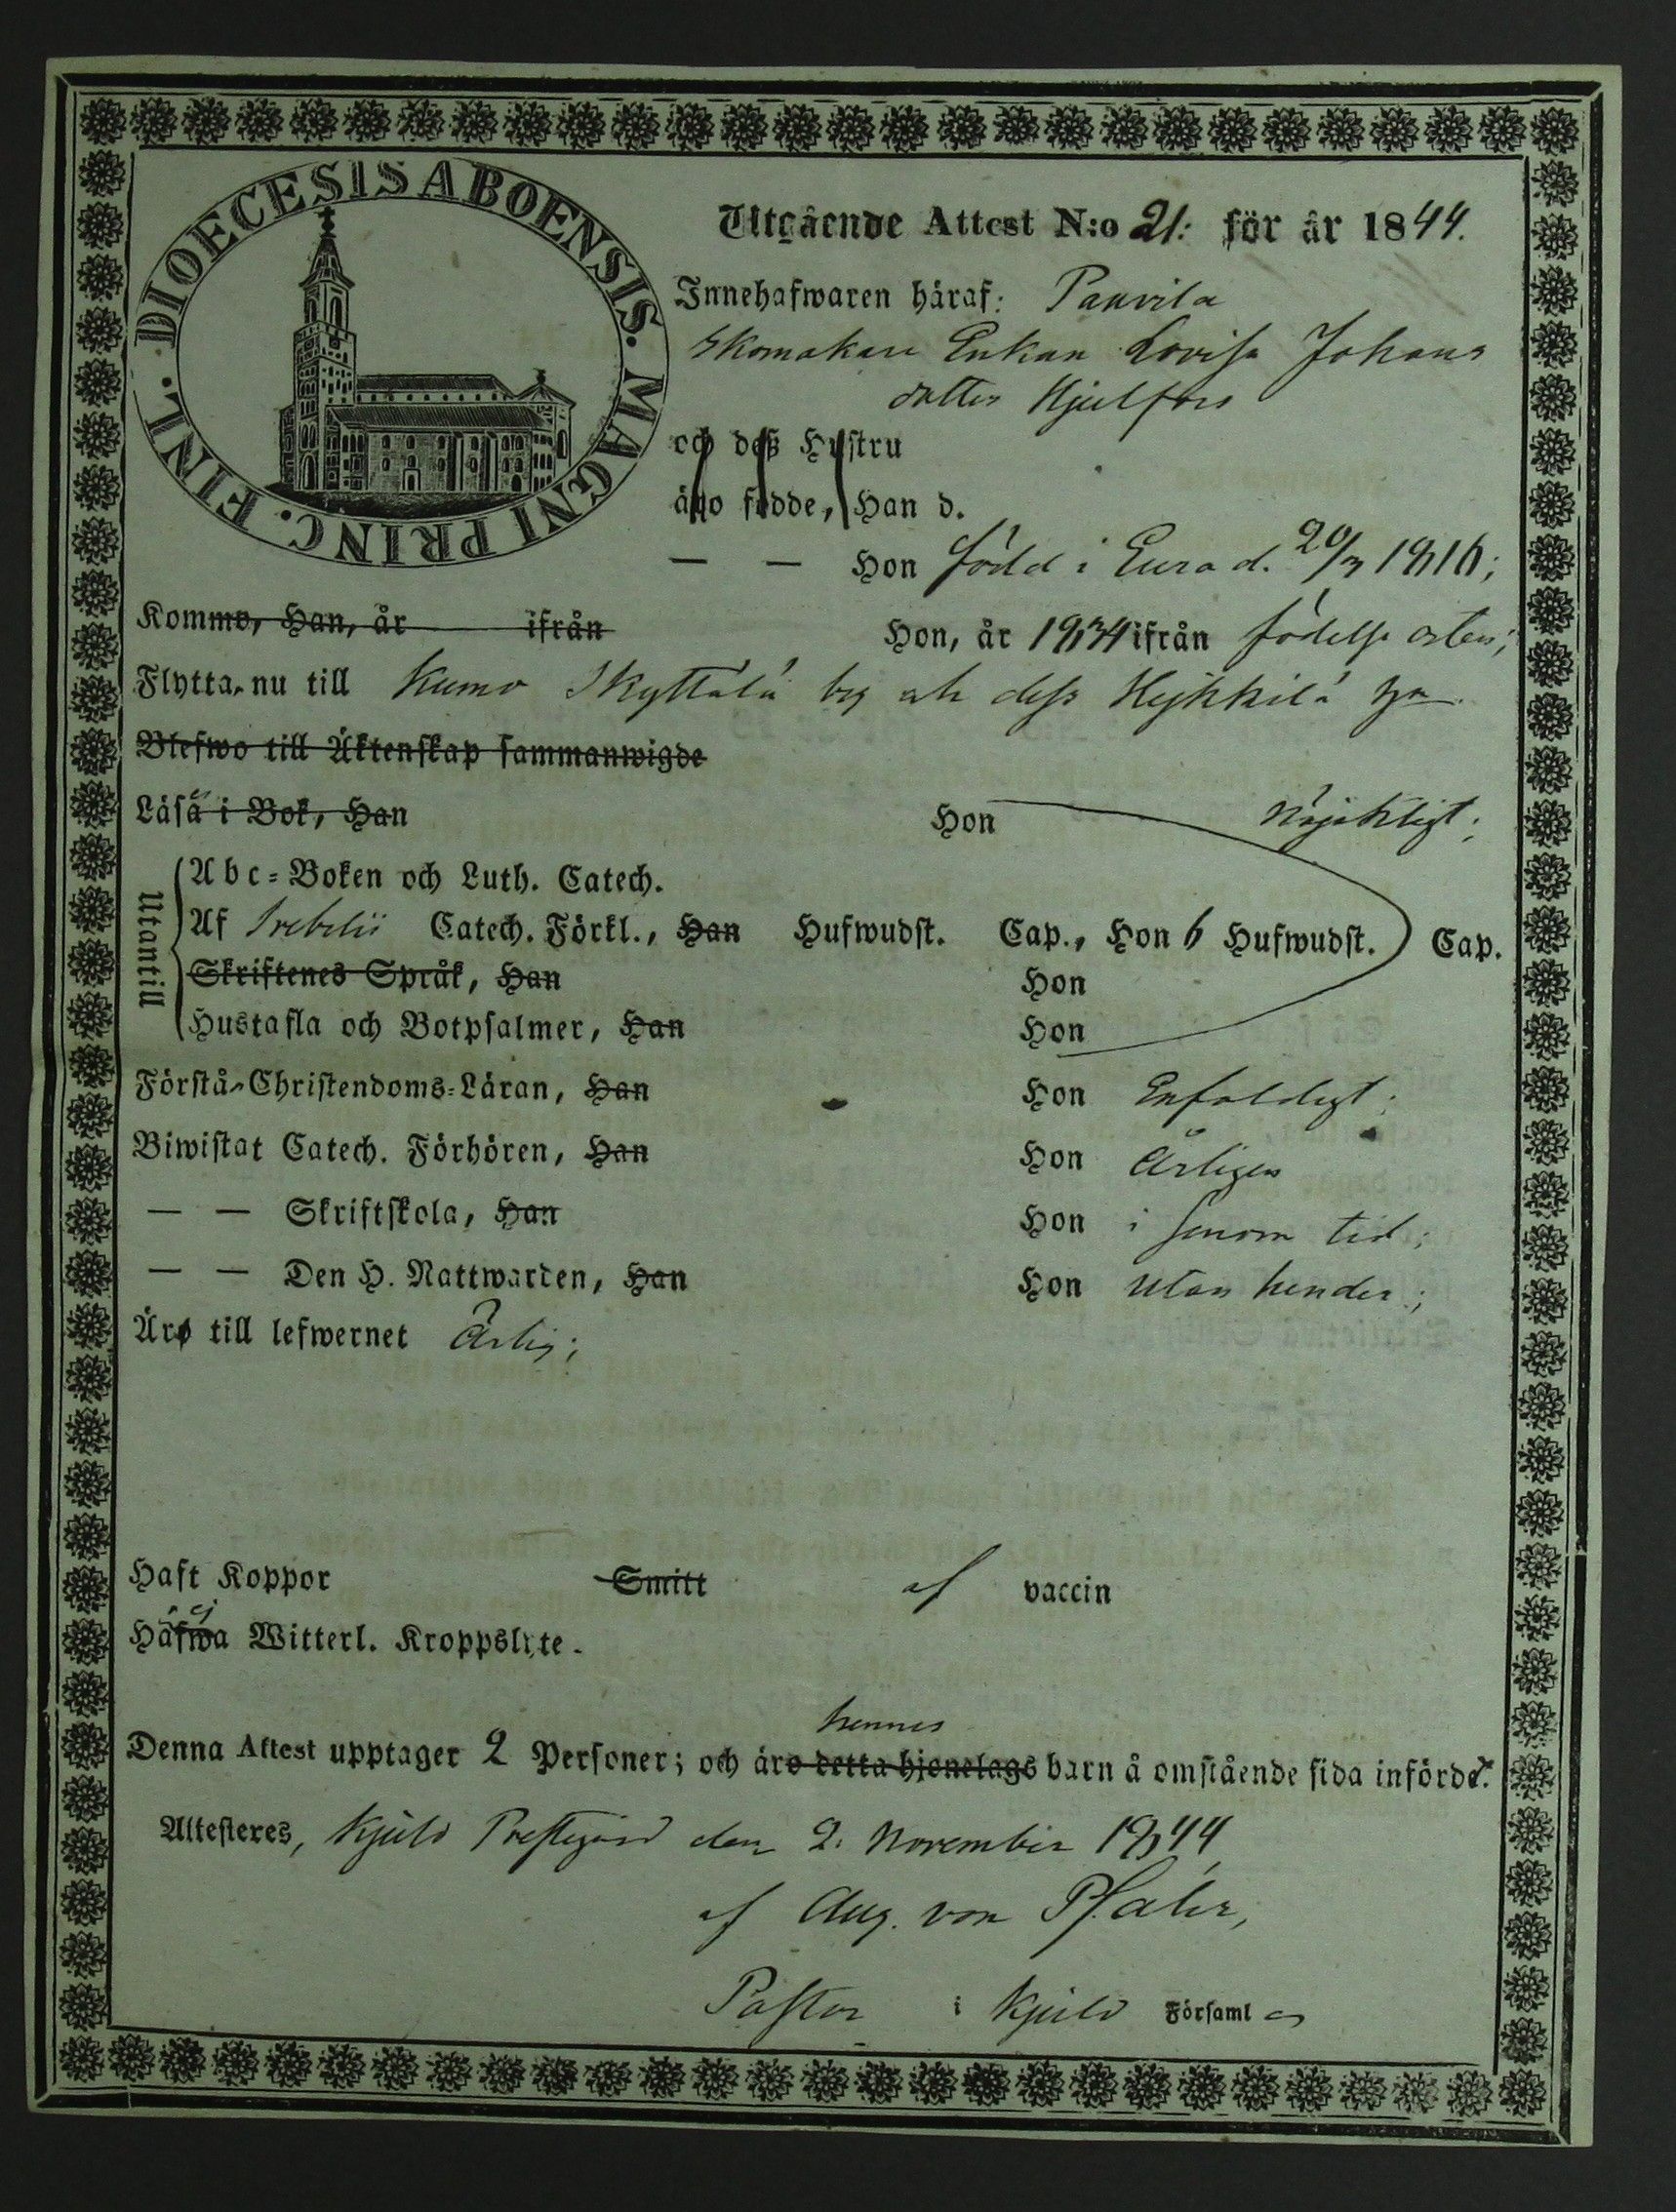 DIOECESIS ABOENSIS. MAGNI PRINC. FINL.
Utgående Attest N:o 21: för år 1844.
Innehafwaren häraf: Panvila
Skomakare Enkan Lovisa Johans
dotter Kjulfors
och deß Hustru
äro födde, Han d.
— — Hon född i Eura d. 20/3 1816;
Kommo, Han, år ifrån Hon, år 1834 ifrån födelse orten;
Flytta nu till Kumo Skyttälä by och dess Heikkilä
Blefwo till Äktenskap sammanwigde
Läsa i Bok, Han Hon Nöjaktigt;
Utantill
Abc-Boken och Luth. Catech.
Af Svebelii Catech. Förkl., Han Hufwudst. Cap., Hon 6 Hufwudst. Cap.
Skriftenes Språk, Han Hon
Hustafla och Botpsalmer, Han Hon
Förstå Christendoms-Läran, Han Hon Enfaldigt;
Biwistat Catech. Förhören, Han Hon Årligen
— — Skriftskola, Han Hon i sinom tid;
— — Den H. Nattwarden, Han Hon utan hinder;
Äro till lefwernet Ärlig;
Haft Koppor Smitt af vaccin
Hafwa ej Witterl. Kroppslyte.
hennes
Denna Attest upptager 2 Personer; och äro detta hjonelags barn å omstående sida införde.
Attesteres, Kjulo Prestegård den 2. November 1844
af Aug. von Pfaler,
Pastor i Kjulo Församl